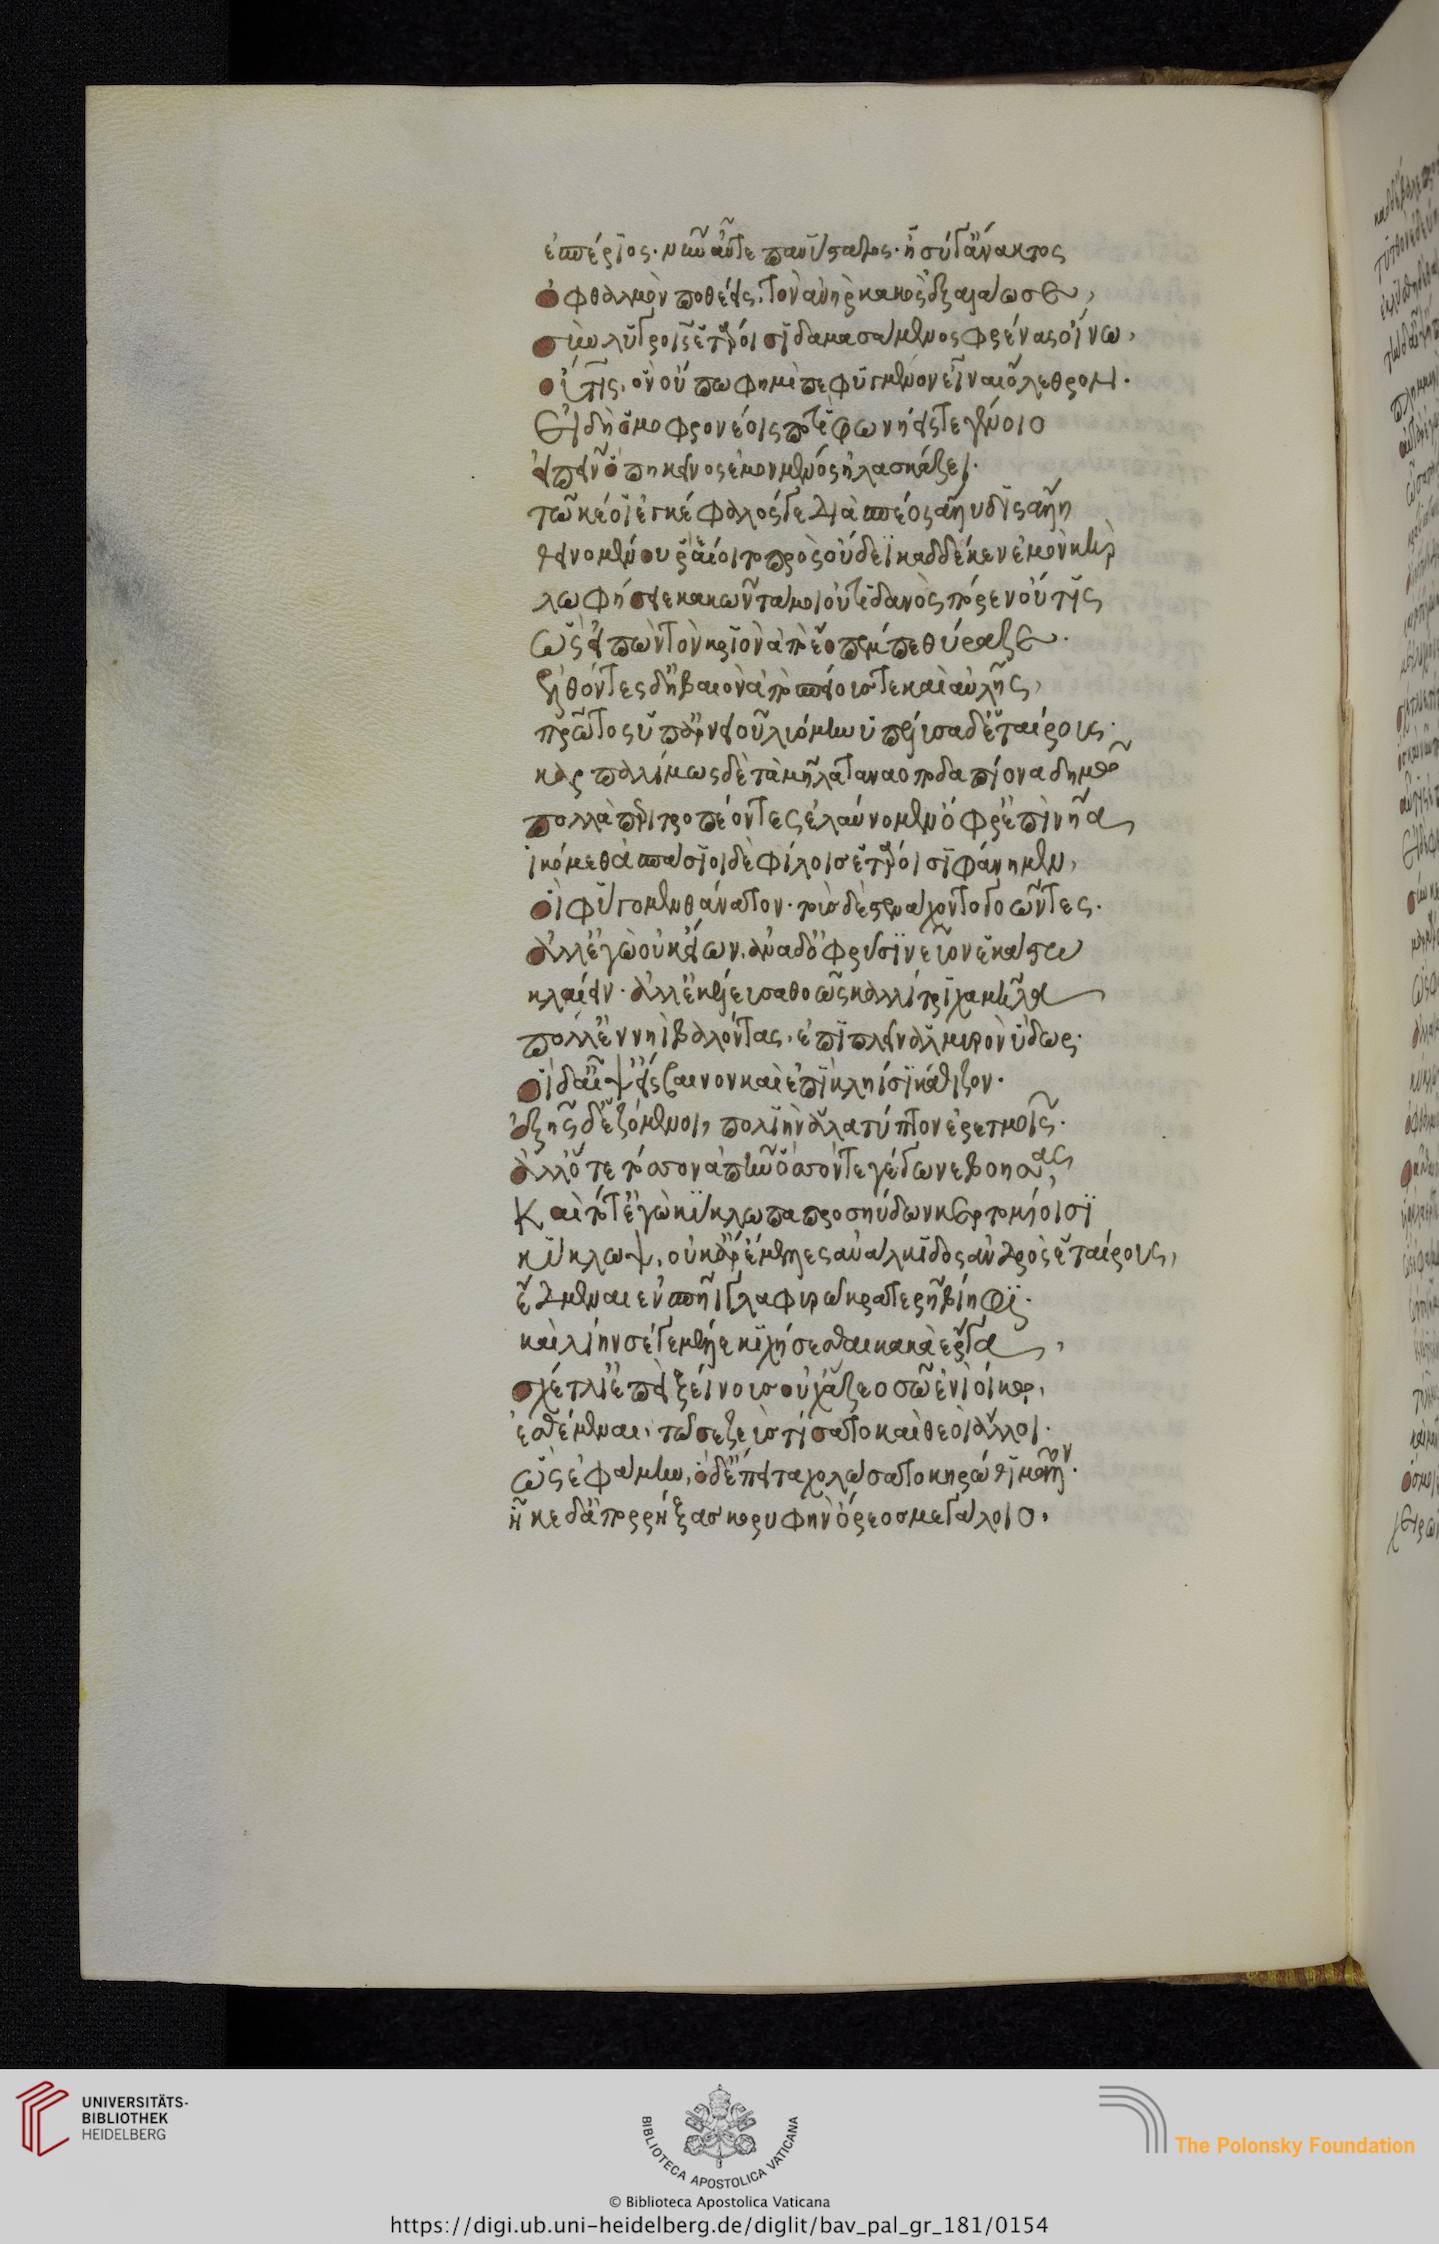 ἑσπέριος· νῦν αὖτε πανύστατος· ἦ σύγ' ἄνακτος
ὀφθαλμὸν ποθέεις, τὸν ἀνὴρ κακὸς ἐξαλάωσε,
σὺν λυγροῖς ἑτάροισι δαμασσάμενος φρένας οἴνω,
οὖτις, ὃν οὔπω φημὶ πεφυγμένον εἶναι ὄλεθρον.
εἰ δὴ ὁμοφρονέοις ποτιφωνήεις τε γένοιο
εἰπεῖν ὅππη κεῖνος ἐμὸν μένος ἠλασκάζει.
τῶ κέ οἱ ἐγκέφαλός γε διὰ σπέος ἄλλυδις ἄλλη
θεινομένου ῥαίοιτο πρὸς οὔδεϊ καδδέ κεν ἐμὸν κῆρ
λωφήσειε κακῶν τά μοι οὐτιδανὸς πόρεν οὔτις
ὣς εἰπὼν τὸν κριὸν ἀπὸ ἕο πέμπε θύραζε.
ἐλθόντες δ' ἠβαιὸν ἀπὸ σπείους τε καὶ αὐλῆς,
πρῶτος ὑπ' ἀρνειοῦ λυόμην ὑπέλυσα δ' ἑταίρους.
καρπαλίμως δὲ τὰ μῆλα ταναόποδα πίονα δημῷ
πολλὰ περιτροπέοντες ἐλαύνομεν ὄφρ' ἐπὶ νῆα
ἱκόμεθ' ἀσπάσιοι δὲ φίλοις ἑτάροισι φάνημεν,
οἳ φύγομεν θάνατον· τοὺς δὲ στενάχοντο γοῶντες.
ἀλλ' ἐγὼ οὐκ εἴων. ἀνὰ δ' ὀφρύσι νεῦον ἑκάστω
κλαίειν· ἀλλ' ἐκέλευσα θοῶς καλλίτριχα μῆλα
πόλλ' ἐν νηὶ βαλόντας, ἐπιπλεῖν ἁλμυρὸν ὕδωρ.
οἱ δ' αἶψ' εἴσβαινον καὶ ἐπὶ κληῖσι κάθιζον.
ἑξῆς δ' ἑζόμενοι, πολιὴν ἅλα τύπτον ἐρετμοῖς.
ἀλλ' ὅτε τόσσον ἀπῆν ὅσσόν τε γέγωνε βοήσας,
καὶ τότ' ἐγὼ κύκλωπα προσηύδων κερτομίοισι
κύκλωψ, οὐκ ἄρ' ἔμελλες ἀνάλκιδος ἀνδρὸς ἑταίρους,
ἔδμεναι ἐν σπῆϊ γλαφυρῷ κρατερῆφι βίηφι.
καὶ λίην σέγ' ἔμελλε κιχήσεσθαι κακὰ ἔργα,
σχέτλι' ἐπεὶ ξείνους οὐχ ἅζεο σῶ ἐνὶ οἴκῳ,
ἐσθέμεναι, τῶ σε ζεὺς τίσατο καὶ θεοὶ ἄλλοι.
ὣς ἐφάμην, ὁ δ' ἔπειτα χολώσατο κηρόθι μᾶλλον.
ἧκε δ' ἀπορρήξας κορυφὴν ὄρεος μεγάλοιο.
UNIVERSITÄTS-
BIBLIOTHEK
HEIDELBERG
BIBLIOTECA APOSTOLICA VATICANA
The Polonsky Foundation
© Biblioteca Apostolica Vaticana
https://digi.ub.uni-heidelberg.de/diglit/bav_pal_gr_181/0154